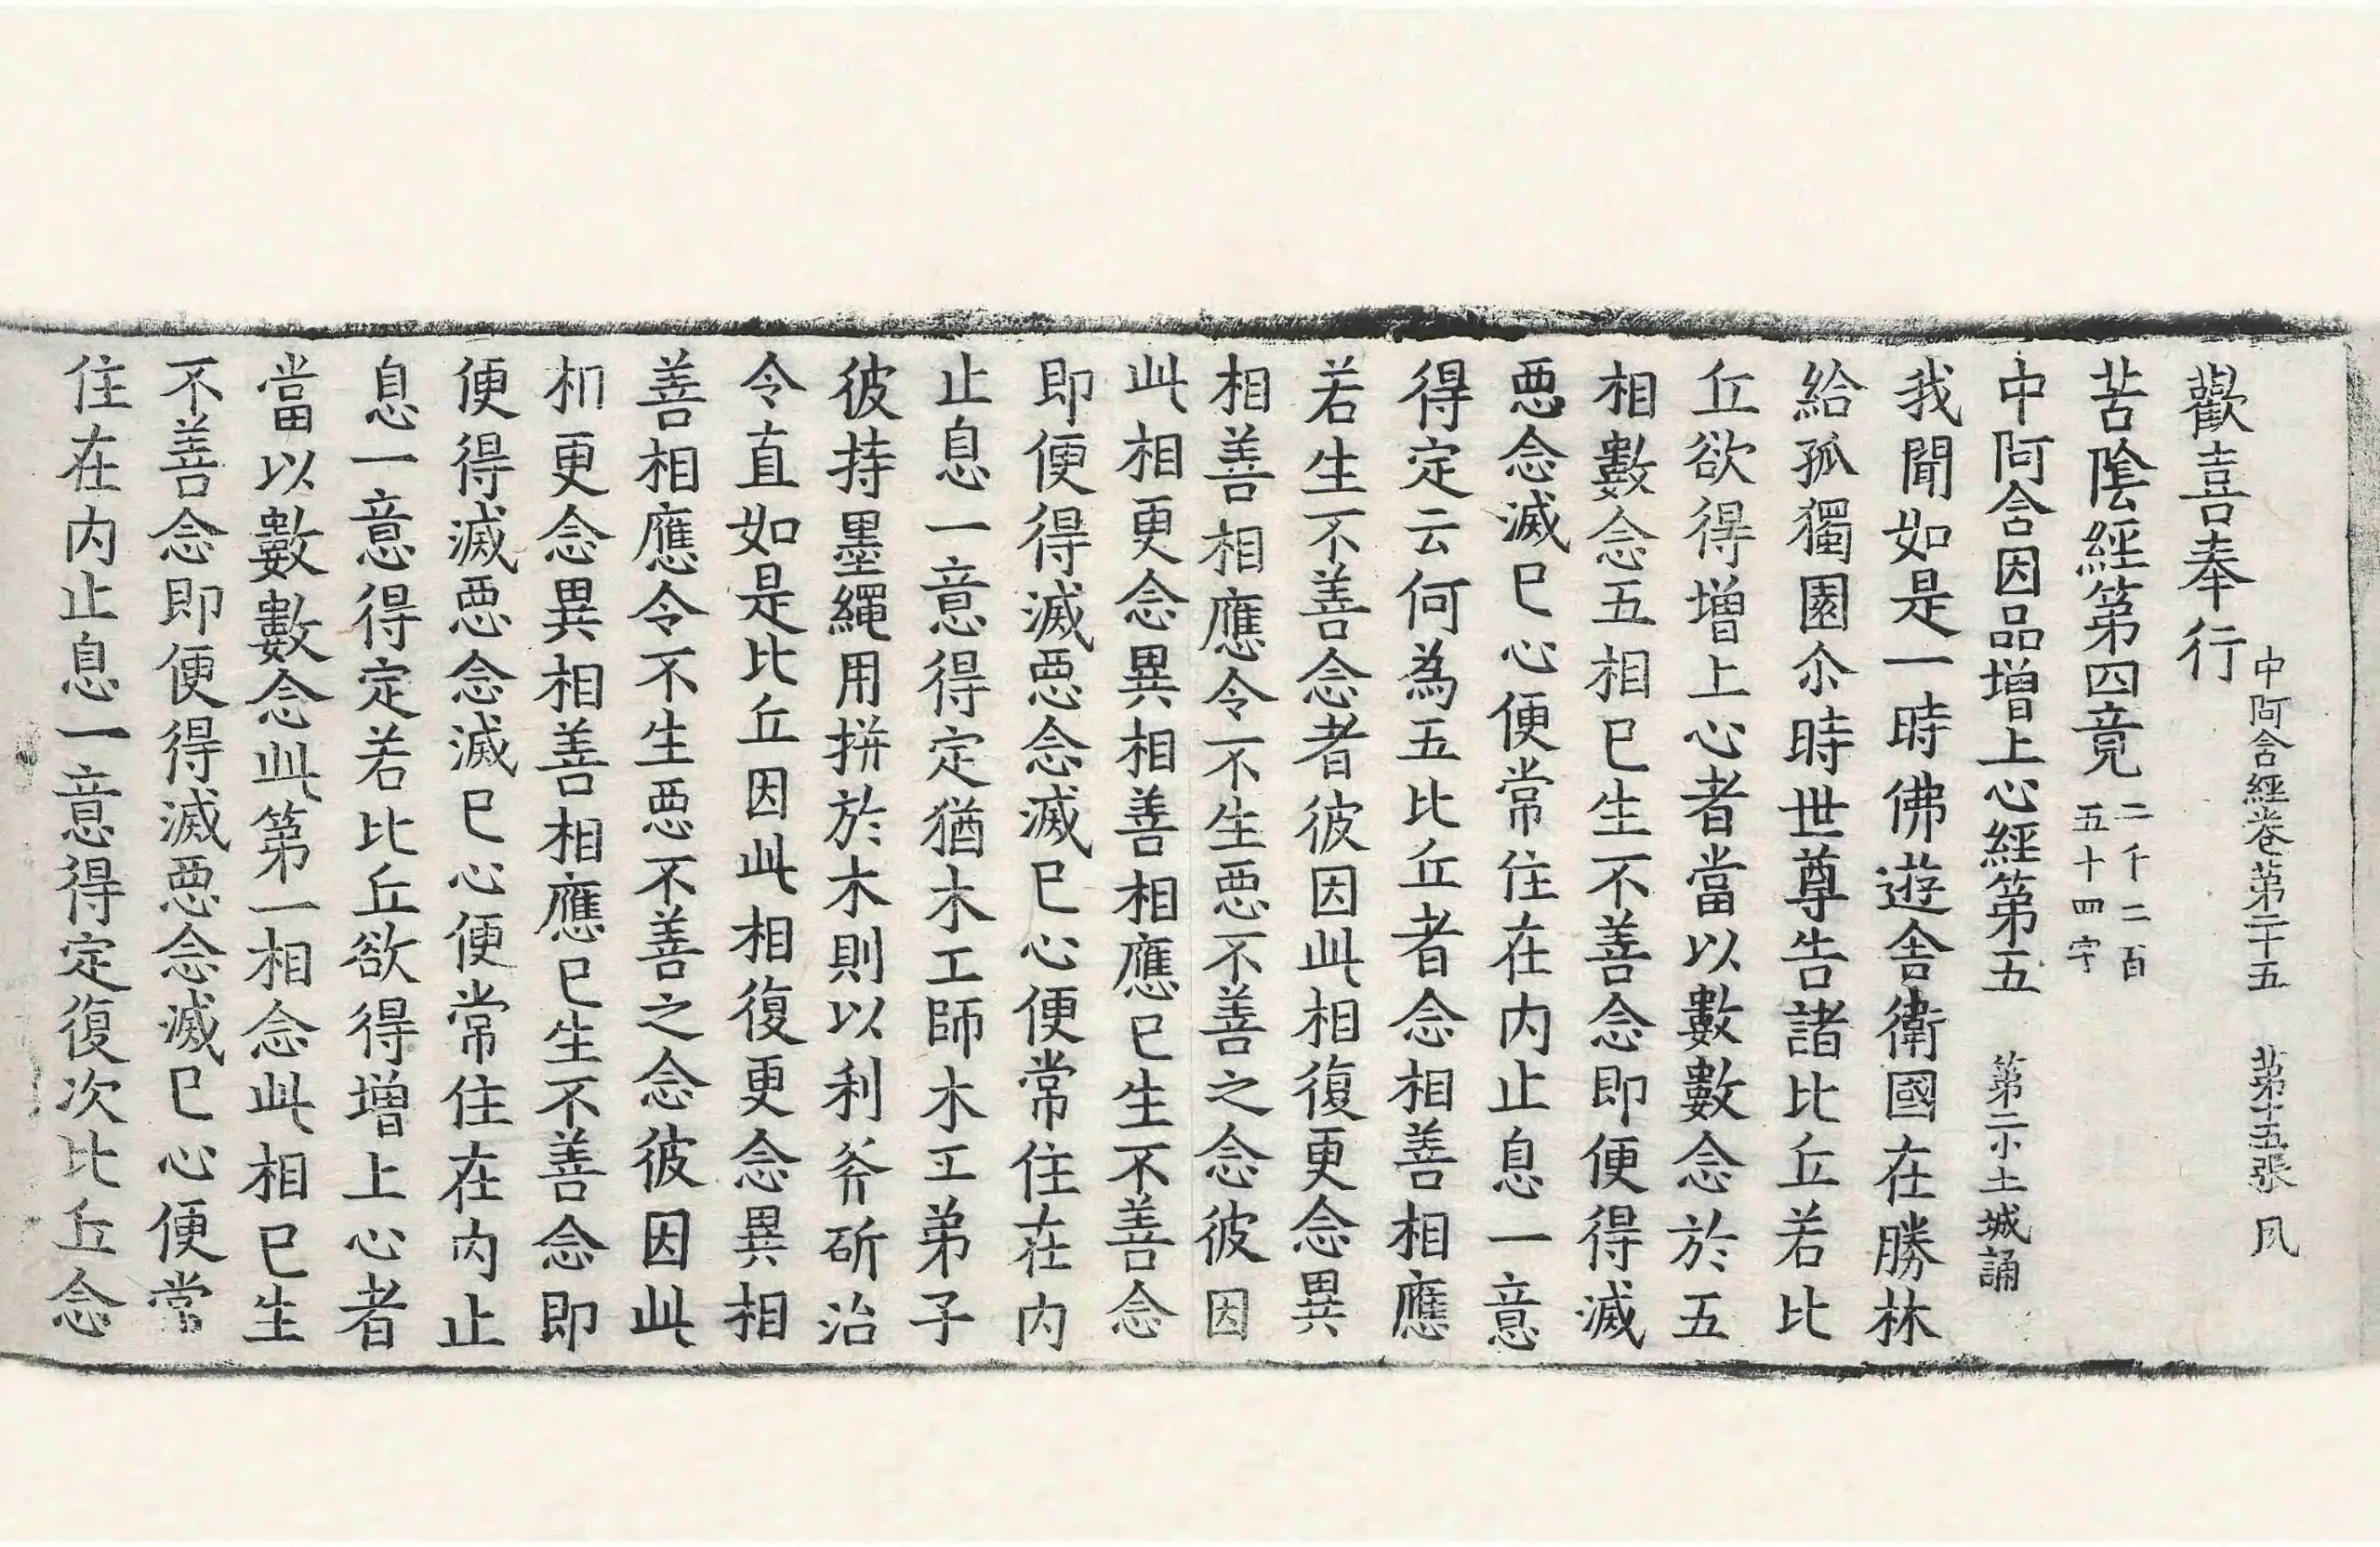 中阿含經卷第二十五 第十五張 凨
歡喜奉行
苦陰經第四竟 二千二百
五十四字
中阿含因品增上心經第五 第二小土城誦
我聞如是一時佛遊舍衛國在勝林
給孤獨園尒時世尊告諸比丘若比
丘欲得增上心者當以數數念於五
相數念五相已生不善念即便得滅
惡念滅已心便常住在内止息一意
得定云何為五比丘者念相善相應
若生不善念者彼因此相復更念異
相善相應令不生惡不善之念彼因
此相更念異相善相應已生不善念
即便得滅惡念滅已心便常住在内
止息一意得定猶木工師木工弟子
彼持墨繩用拼於木則以利斧斫治
令直如是比丘因此相復更念異相
善相應令不生惡不善之念彼因此
相更念異相善相應已生不善念即
便得滅惡念滅已心便常住在内止
息一意得定若比丘欲得增上心者
當以數數念此第一相念此相已生
不善念即便得滅惡念滅已心便常
住在内止息一意得定復次比丘念